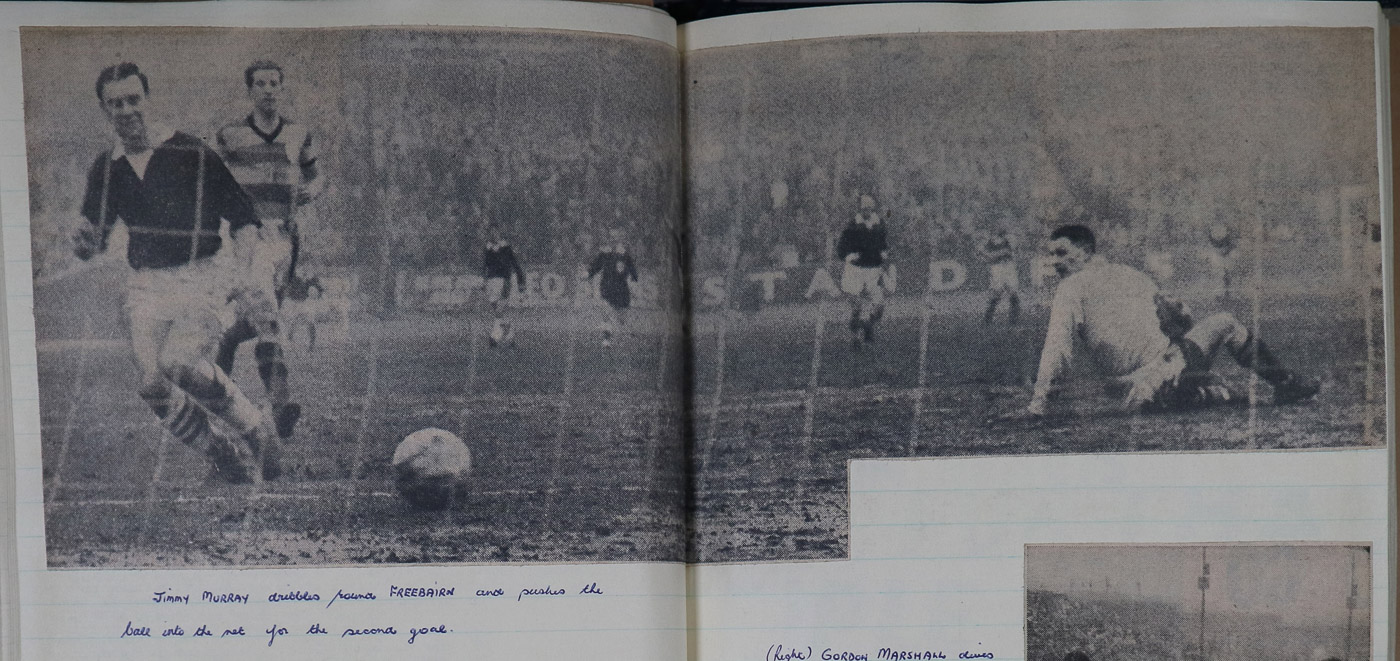 STANDARD
Jimmy MURRAY dribbles round FREEBAIRN and pushes the
ball into the net for the second goal.
(Right) GORDON MARSHALL dives